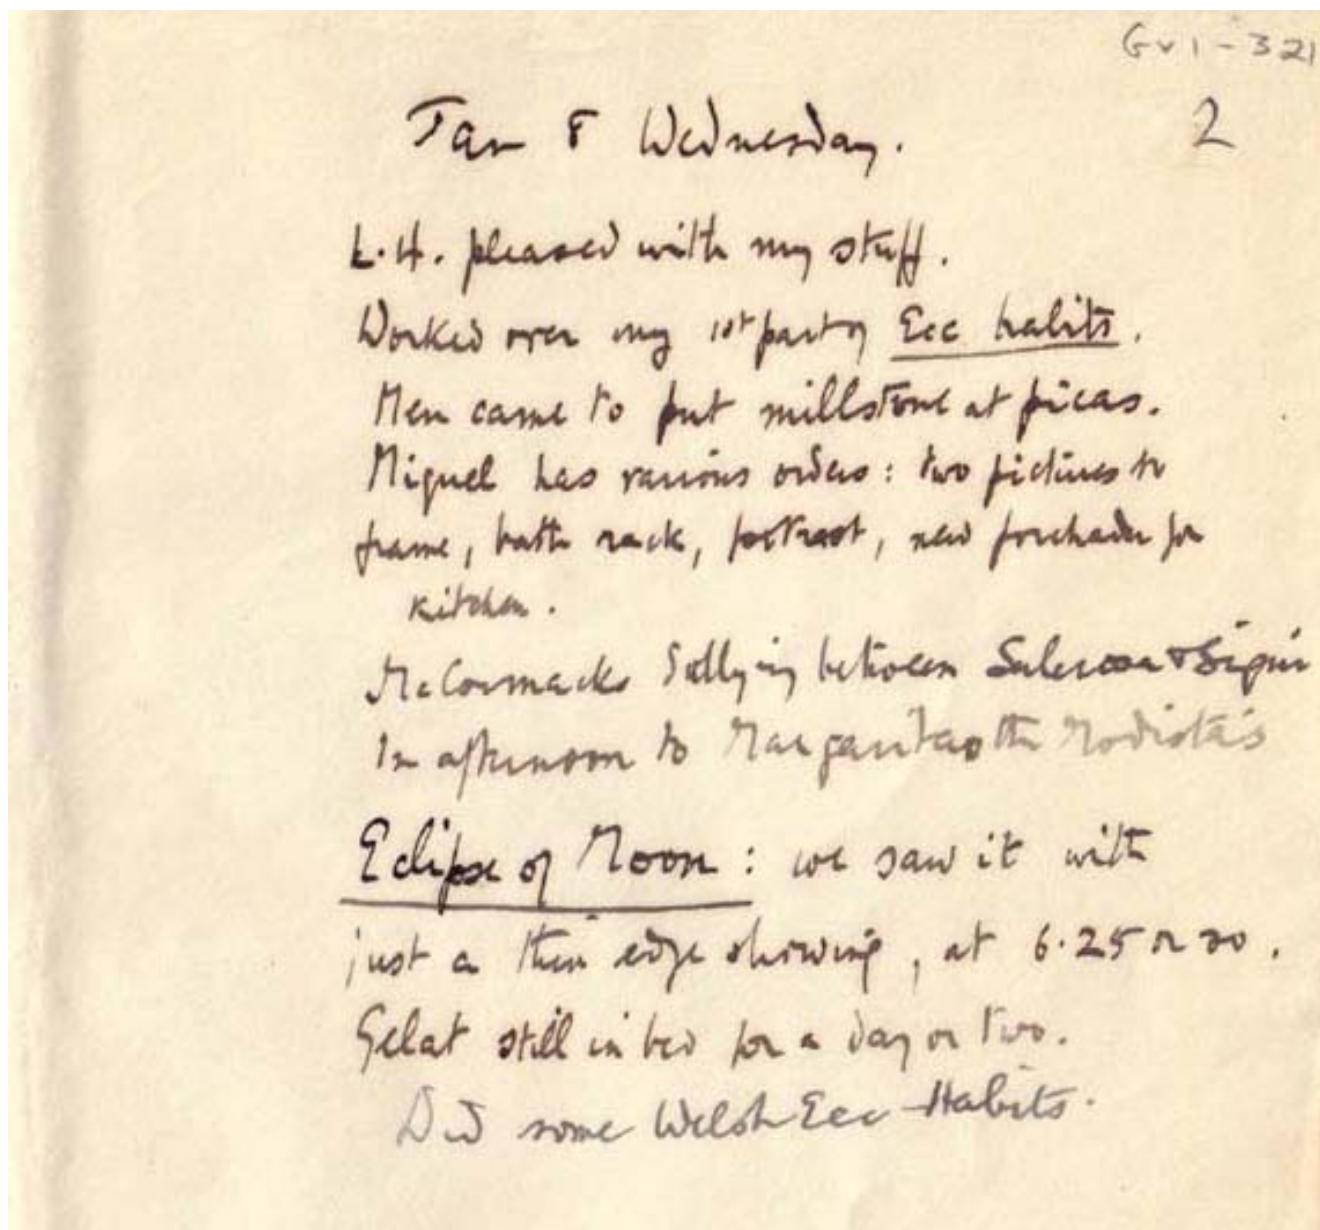 GV1-321
Jan 8 Wednesday. 2
L.H. pleased with my stuff.
Worked over my 1st part of Ecc habits.
Men came to put millstone at picas.
Miguel has various orders: two pictures to
frame, bath rack, footrest, new for
kitchen.
McCormacks Sallying between Salerosa & Sign
In afternoon to Margaritas the Modista's
Eclipse of Moon: we saw it with
just a thin edge showing, at 6.25 or 30.
Gelat still in bed for a day or two.
Did some Welsh Ecc Habits.